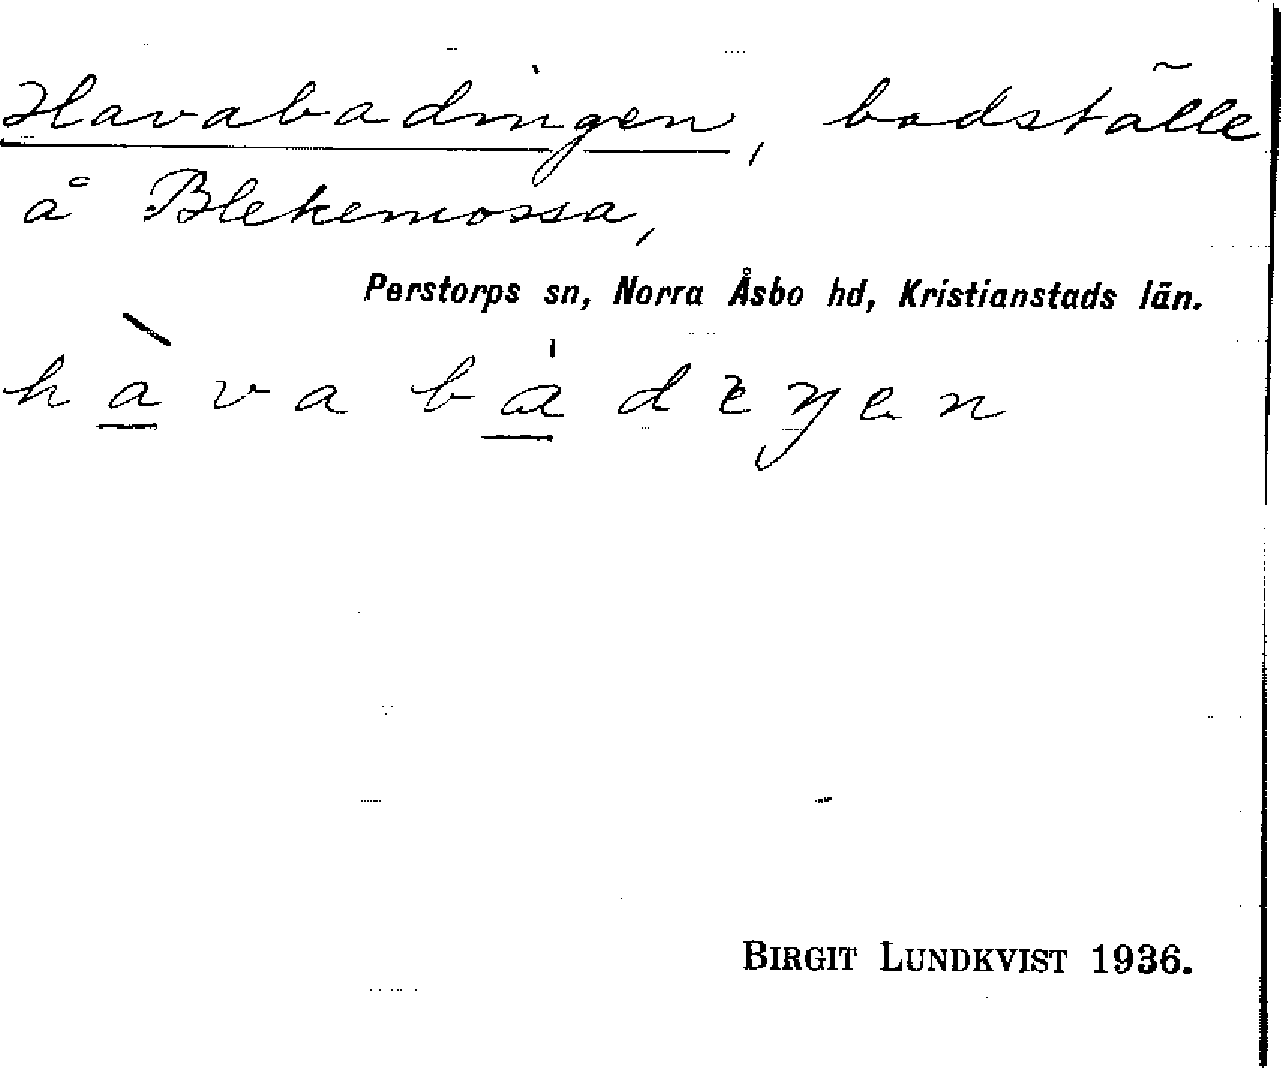 Havabadingen, badställe
å Blekemossa,
Perstorps sn, Norra Åsbo hd, Kristianstads län.
hàva bádıŋen
BIRGIT LUNDKVIST 1936.